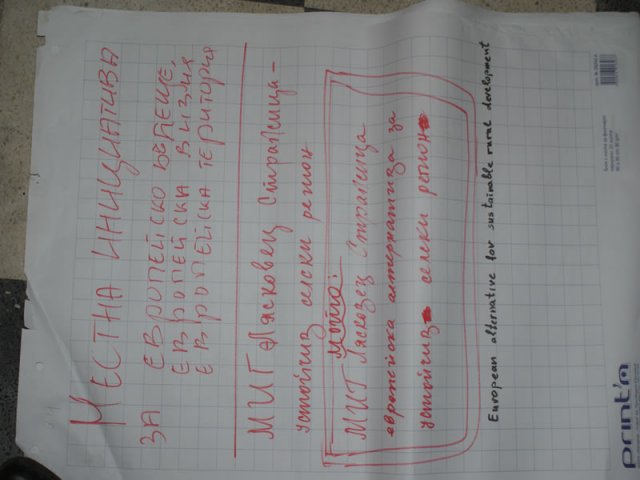 МЕСТНА ИНИЦИАТИВА
ЗА ЕВРОПЕЙСКО
ЕВРОПЕЙСКА ВИЗИЯ,
ЕВРОПЕЙСКА ТЕРИТОРИЯ
МИГ Лясковец Стражица -
устойчив селски регион
Мото:
МИГ Лясковец Стражица
европейска алтернатива за
устойчив селски регион
European alternative for sustainable rural development
print'A